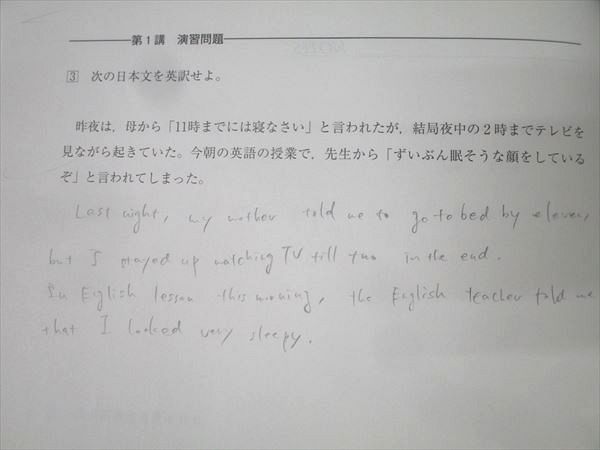 第1講 演習問題
3 次の日本文を英訳せよ。
昨夜は，母から「11時までには寝なさい」と言われたが，結局夜中の2時までテレビを
見ながら起きていた。今朝の英語の授業で，先生から「ずいぶん眠そうな顔をしている
ぞ」と言われてしまった。
Last night, my mother told me to go to bed by eleven,
but I stayed up watching TV till two in the end.
In English lesson this morning, the English teacher told me
that I looked very sleepy.